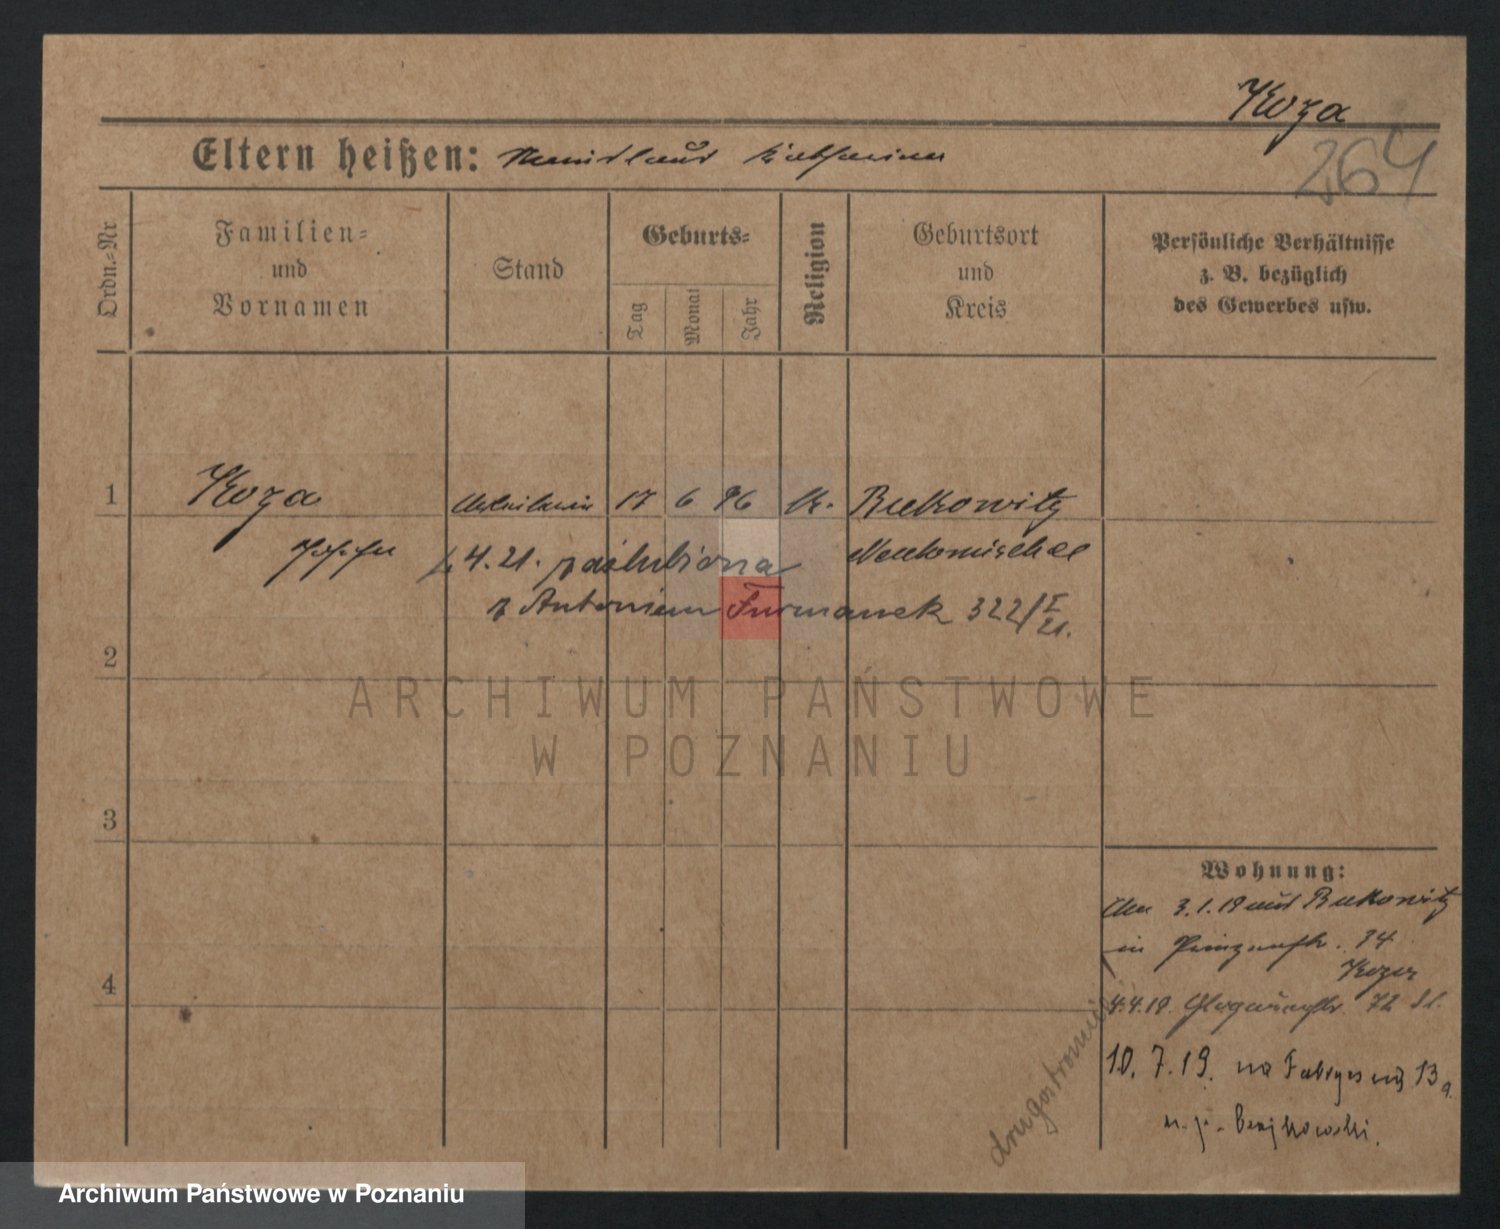 Koza
264
Eltern heißen: Stanislaus Katharina
Ordn.-Nr
Familien-
und
Vornamen
Stand
Geburts-
Tag
Monat
Jahr
Religion
Geburtsort
und
Kreis
Persönliche Verhältnisse
z. B. bezüglich
des Gewerbes usw.
1 Koza Arbeiterin 17 6 96 k. Bukowitz
4.21. poślubiona Neutomischel
z Antonim Furmanek 322/I
21.
2
ARCHIWUM PAŃSTWOWE
W POZNANIU
3
Wohnung:
3.1.19 aus Bukowitz
in Prinzenstr. 34
4
4.4.19. Glogauerstr. 72
10.7.19. na Fabryczną 13a
drugostronnie
Archiwum Państwowe w Poznaniu